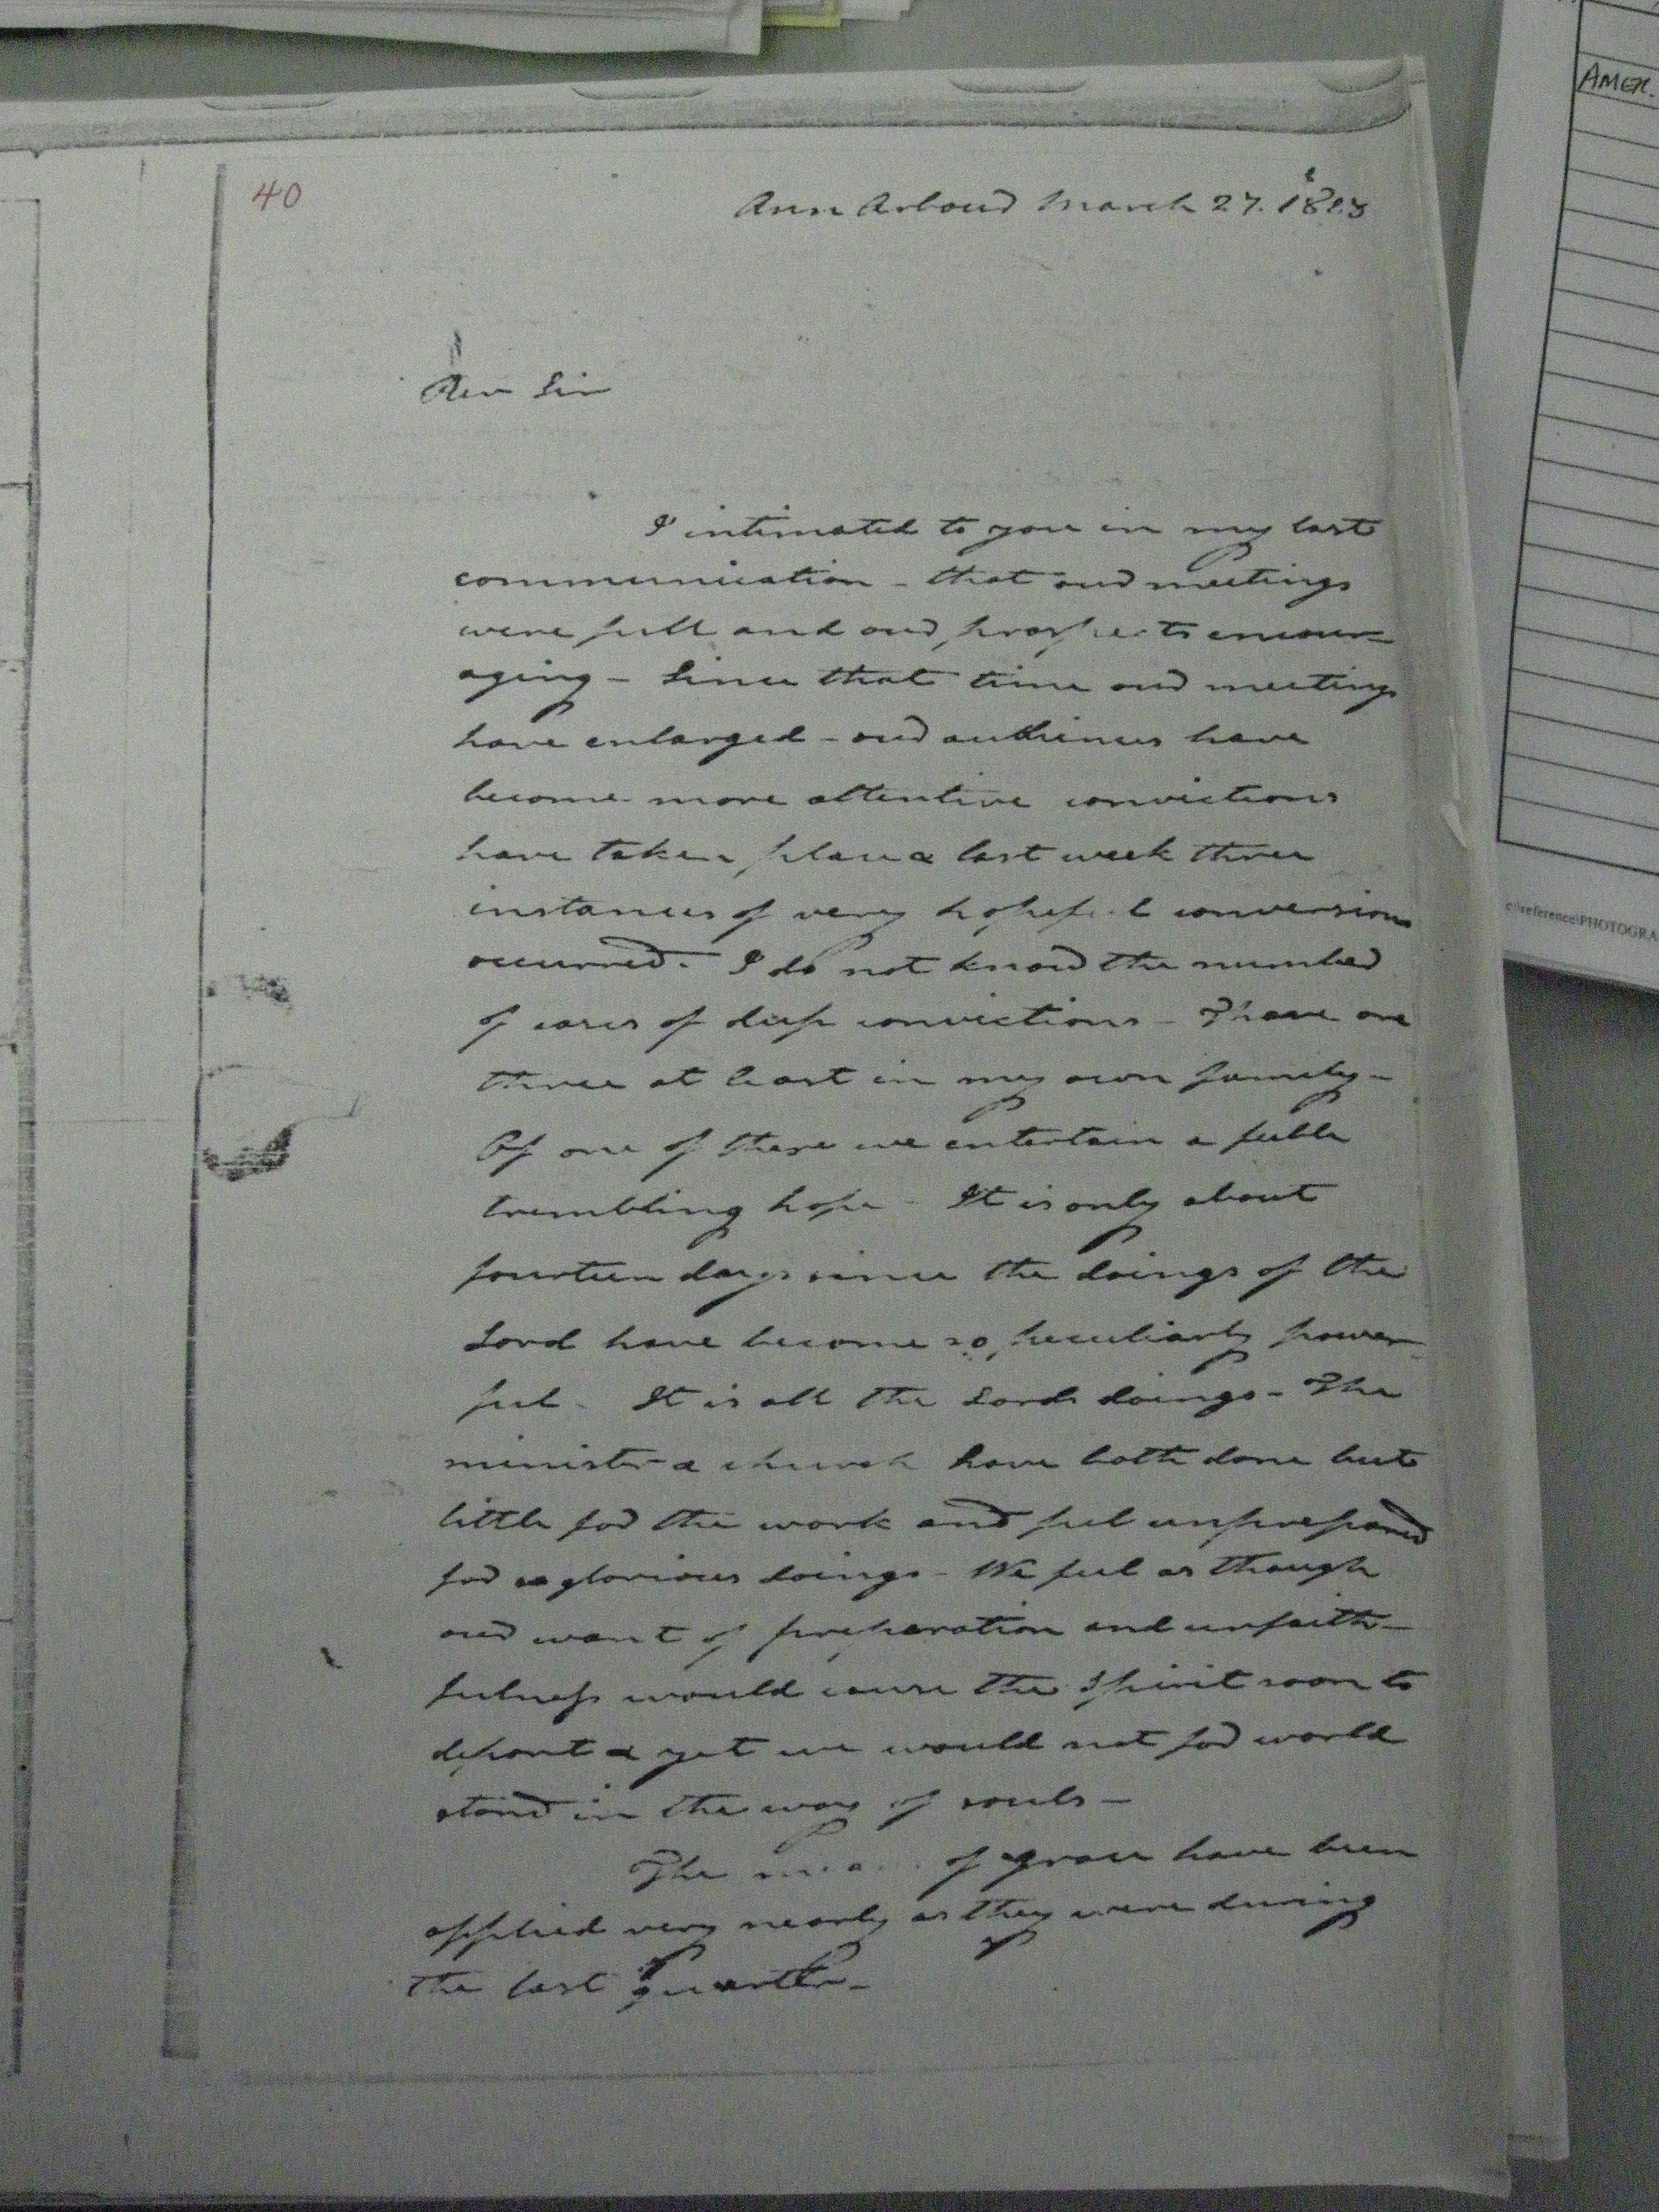 40
Ann Arbour March 27. 18
Rev Sir
I intimated to you in my last
communication - that our meetings
were full and our prospects encour-
aging - Since that time our meetings
have enlarged - our audiences have
become more attentive convictions
have taken place & last week three
instances of very hopeful conversion
occurred. I do not know the number
of cases of deep convictions -
three at least in my own family -
Of one of these we entertain a feeble
trembling hope - It is only about
fourteen days since the doings of the
Lord have become so peculiarly power-
ful. It is all the Lords doings - The
minister & church have both done but
little for the work and feel unprepared
for glorious doings - We feel as though
our want of preparation and unfaith-
fulness would cause the Spirit soon to
depart & yet we would not for world
stand in the way of souls -
The of grace have been
applied very nearly as they were during
the last quarter -
AMER.
c:\reference\PHOTOGRA